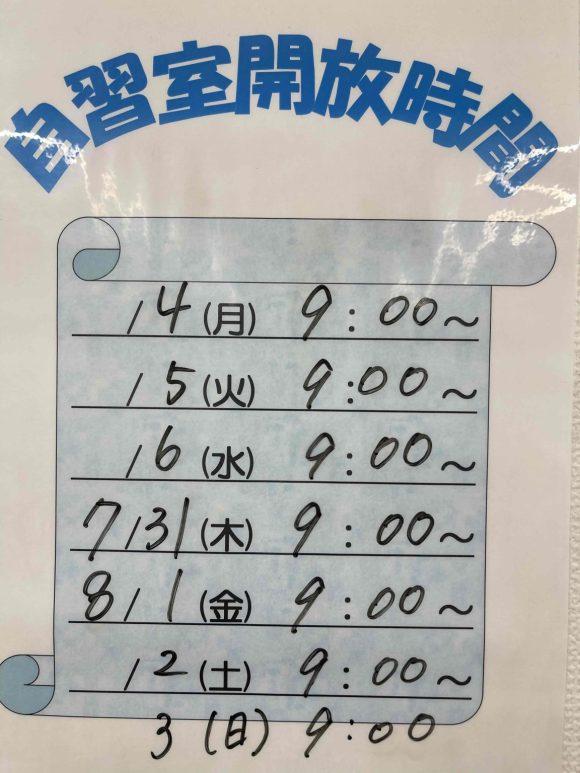 自習室開放時間
/4(月) 9:00~
/5(火) 9:00~
/6(水) 9:00~
7/31(木) 9:00~
8/1(金) 9:00~
/2(土) 9:00~
3(日) 9:00